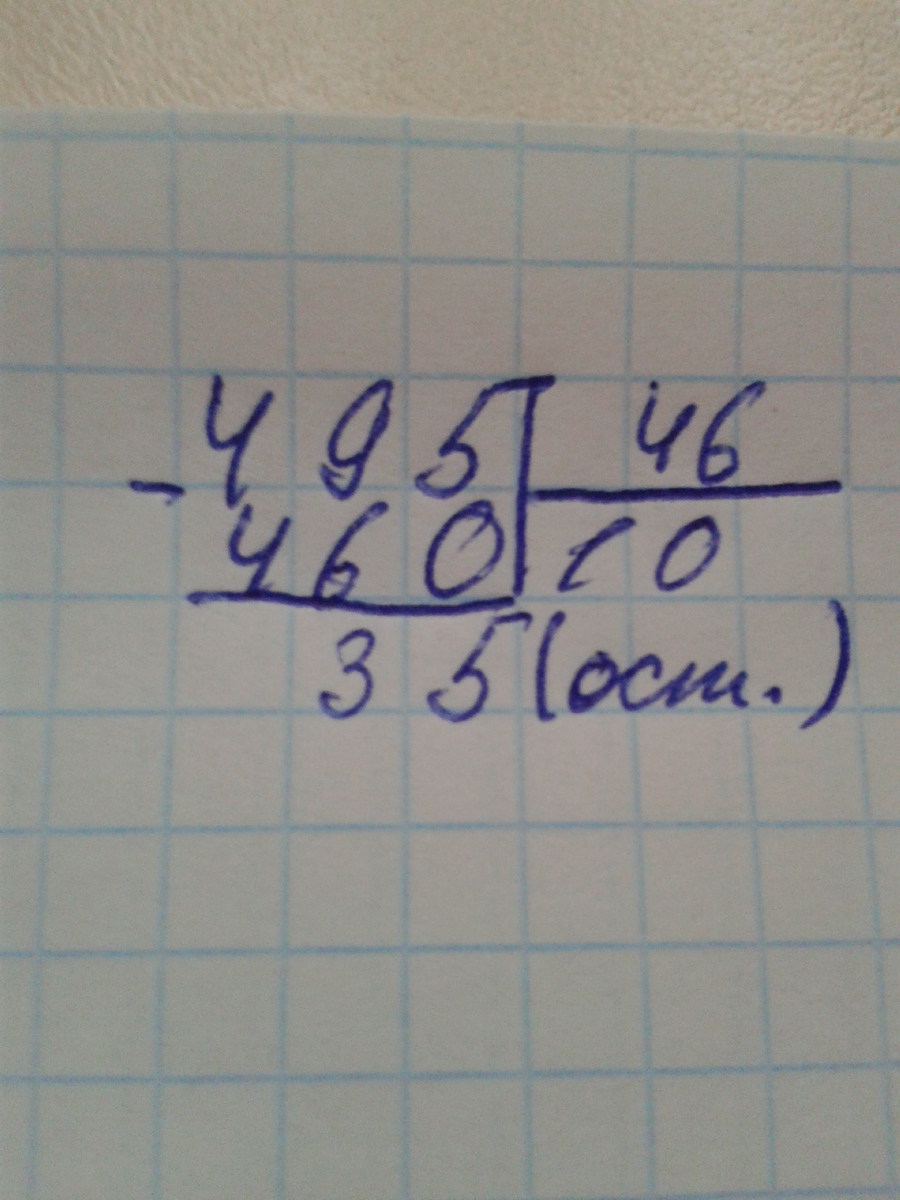 495 46
- 460 10
35 (ост.)